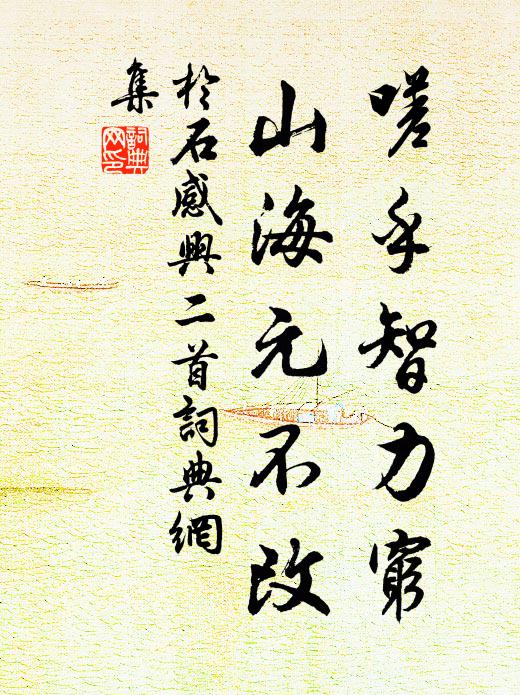 嗟乎智力窮
山海元不改
於石感興二首詞典網
集
詞典网印